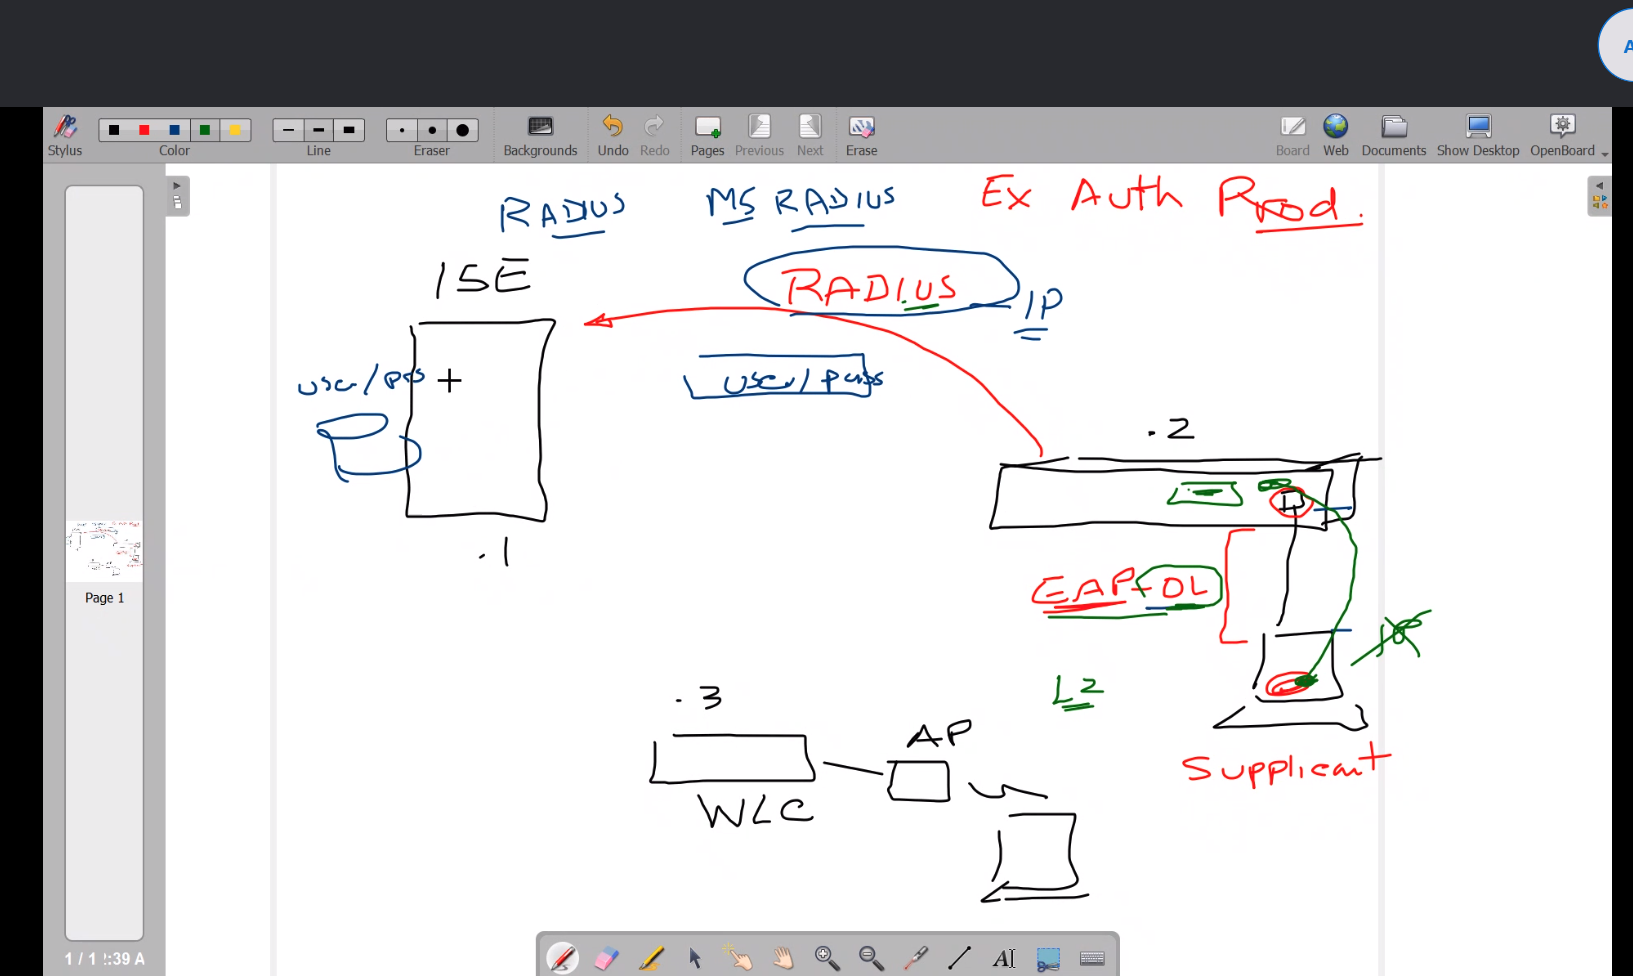 A
Stylus
Color
Line
Eraser
Backgrounds
Undo
Redo
Pages
Previous
Next
Erase
Board
Web
Documents
Show Desktop
OpenBoard
RADIUS
MS RADIUS
Ex Auth Prod.
ISE
RADIUS
IP
user/pas
user/pass
.2
.1
EAP-OL
L2
.3
AP
WLC
Supplicant
Page 1
1 / 1
2:39 A